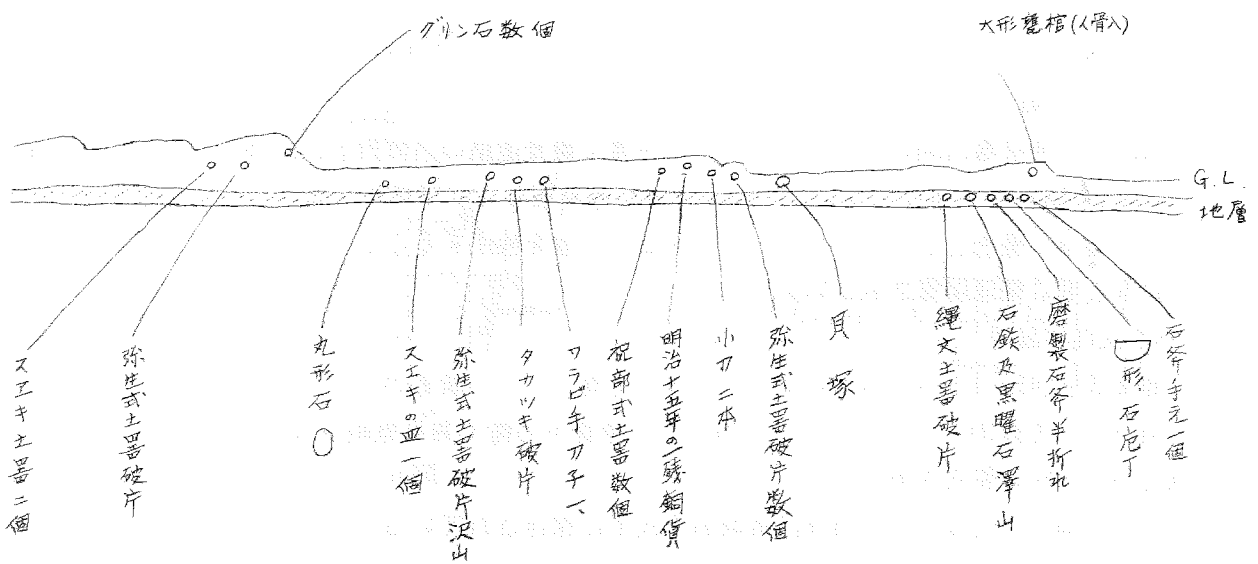 グリン石数個
大形甕棺(人骨入)
G.L.
地層
スヱキ土器二個
弥生式土器破片
丸形石
スエキの皿一個
弥生式土器破片沢山
タカツキ破片
ワラビ手刀子一
祝部式土器数個
明治十五年の一残銅貨
小刀二本
弥生式土器破片数個
貝塚
縄文土器破片
石鏃及黒曜石澤山
磨製石斧半折れ
形、石庖丁
石斧手元一個